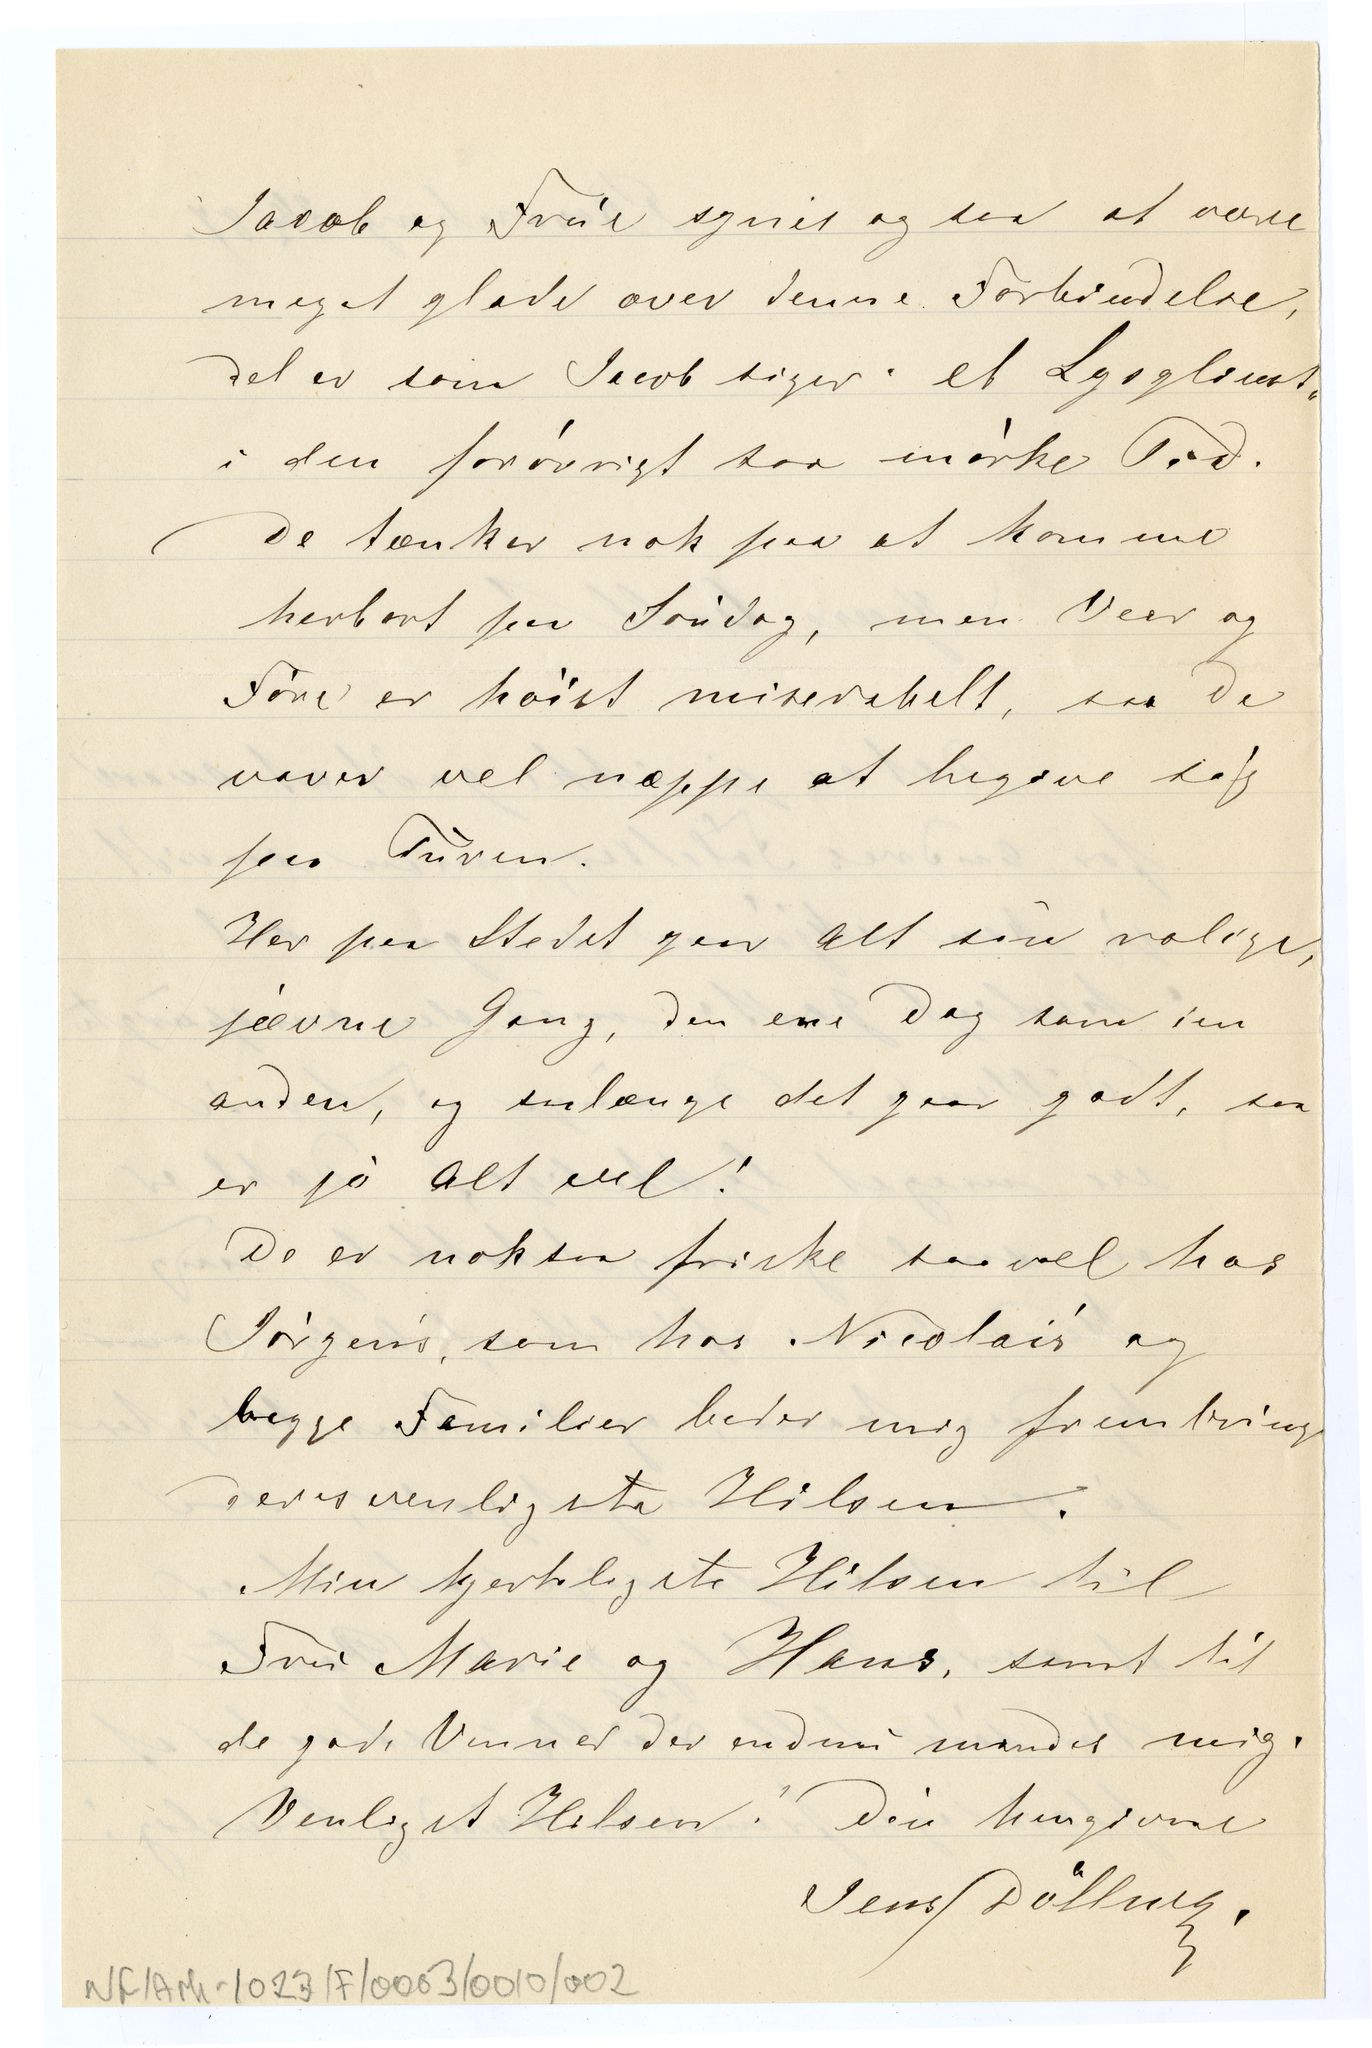 Jacob og Frue synes ogsaa at være
meget glade over denne Forbindelse,
det er som Jacob siger "et Lysglimt"
i den forøvrigt saa mörke Tid.
De tænker nok paa at komme
herbort paa Söndag, men Veer og
Före er höist miserabelt, saa de
vover vel neppe at begive sig
paa Turen.
Her paa Stedet gaar Alt sin rolige,
jævne Gang, den ene Dag som den
anden, og saalænge det gaar godt, saa
er jo Alt vel!
De er noksaa friske saavel hos
Jörgens, som hos Nicolais og
begge Familier beder mig frembringe
deres venligste Hilsen.
Min hjerteligste Hilsen til
Frue Marie og Hans, samt til
de gode Venner der endnu mindes mig.
Venligst Hilsen. Din hengivne
Jens
NF/Ark-1023/F/0003/0010/002